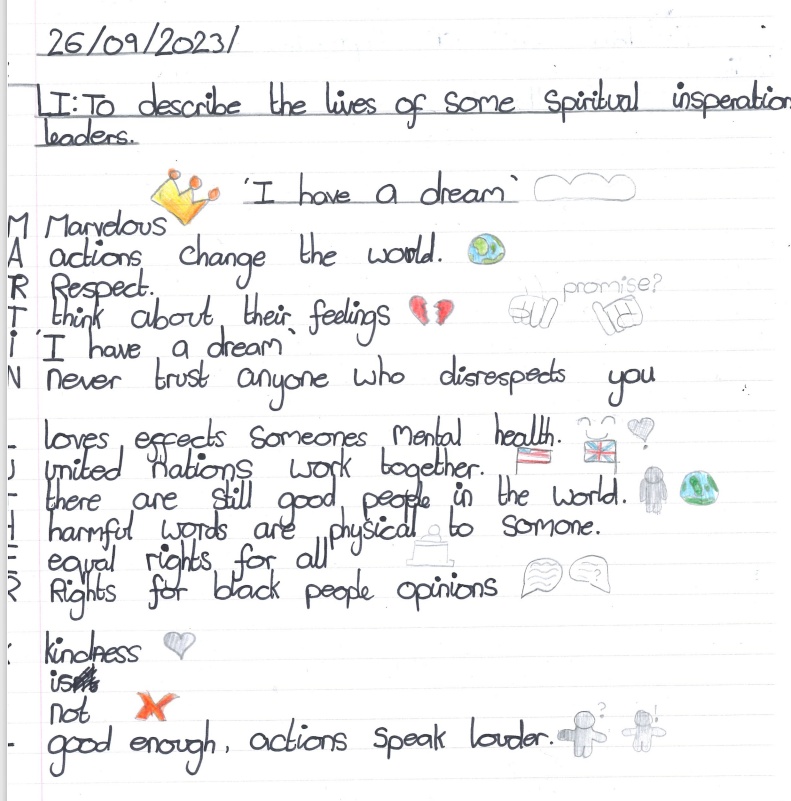 26/09/2023/
LI: To describe the lives of some Spiritual insperation
leaders.
'I have a dream`
M Marvelous
A actions change the world.
R Respect.
promise?
T think about their feelings
i 'I have a dream`
N never trust anyone who disrespects you
loves effects someones Mental health.
united nations work together.
there are still good people in the world.
harmful words are physical to somone.
equal rights for all
Rights for black people opinions
kindness
is
not
good enough, actions speak louder.